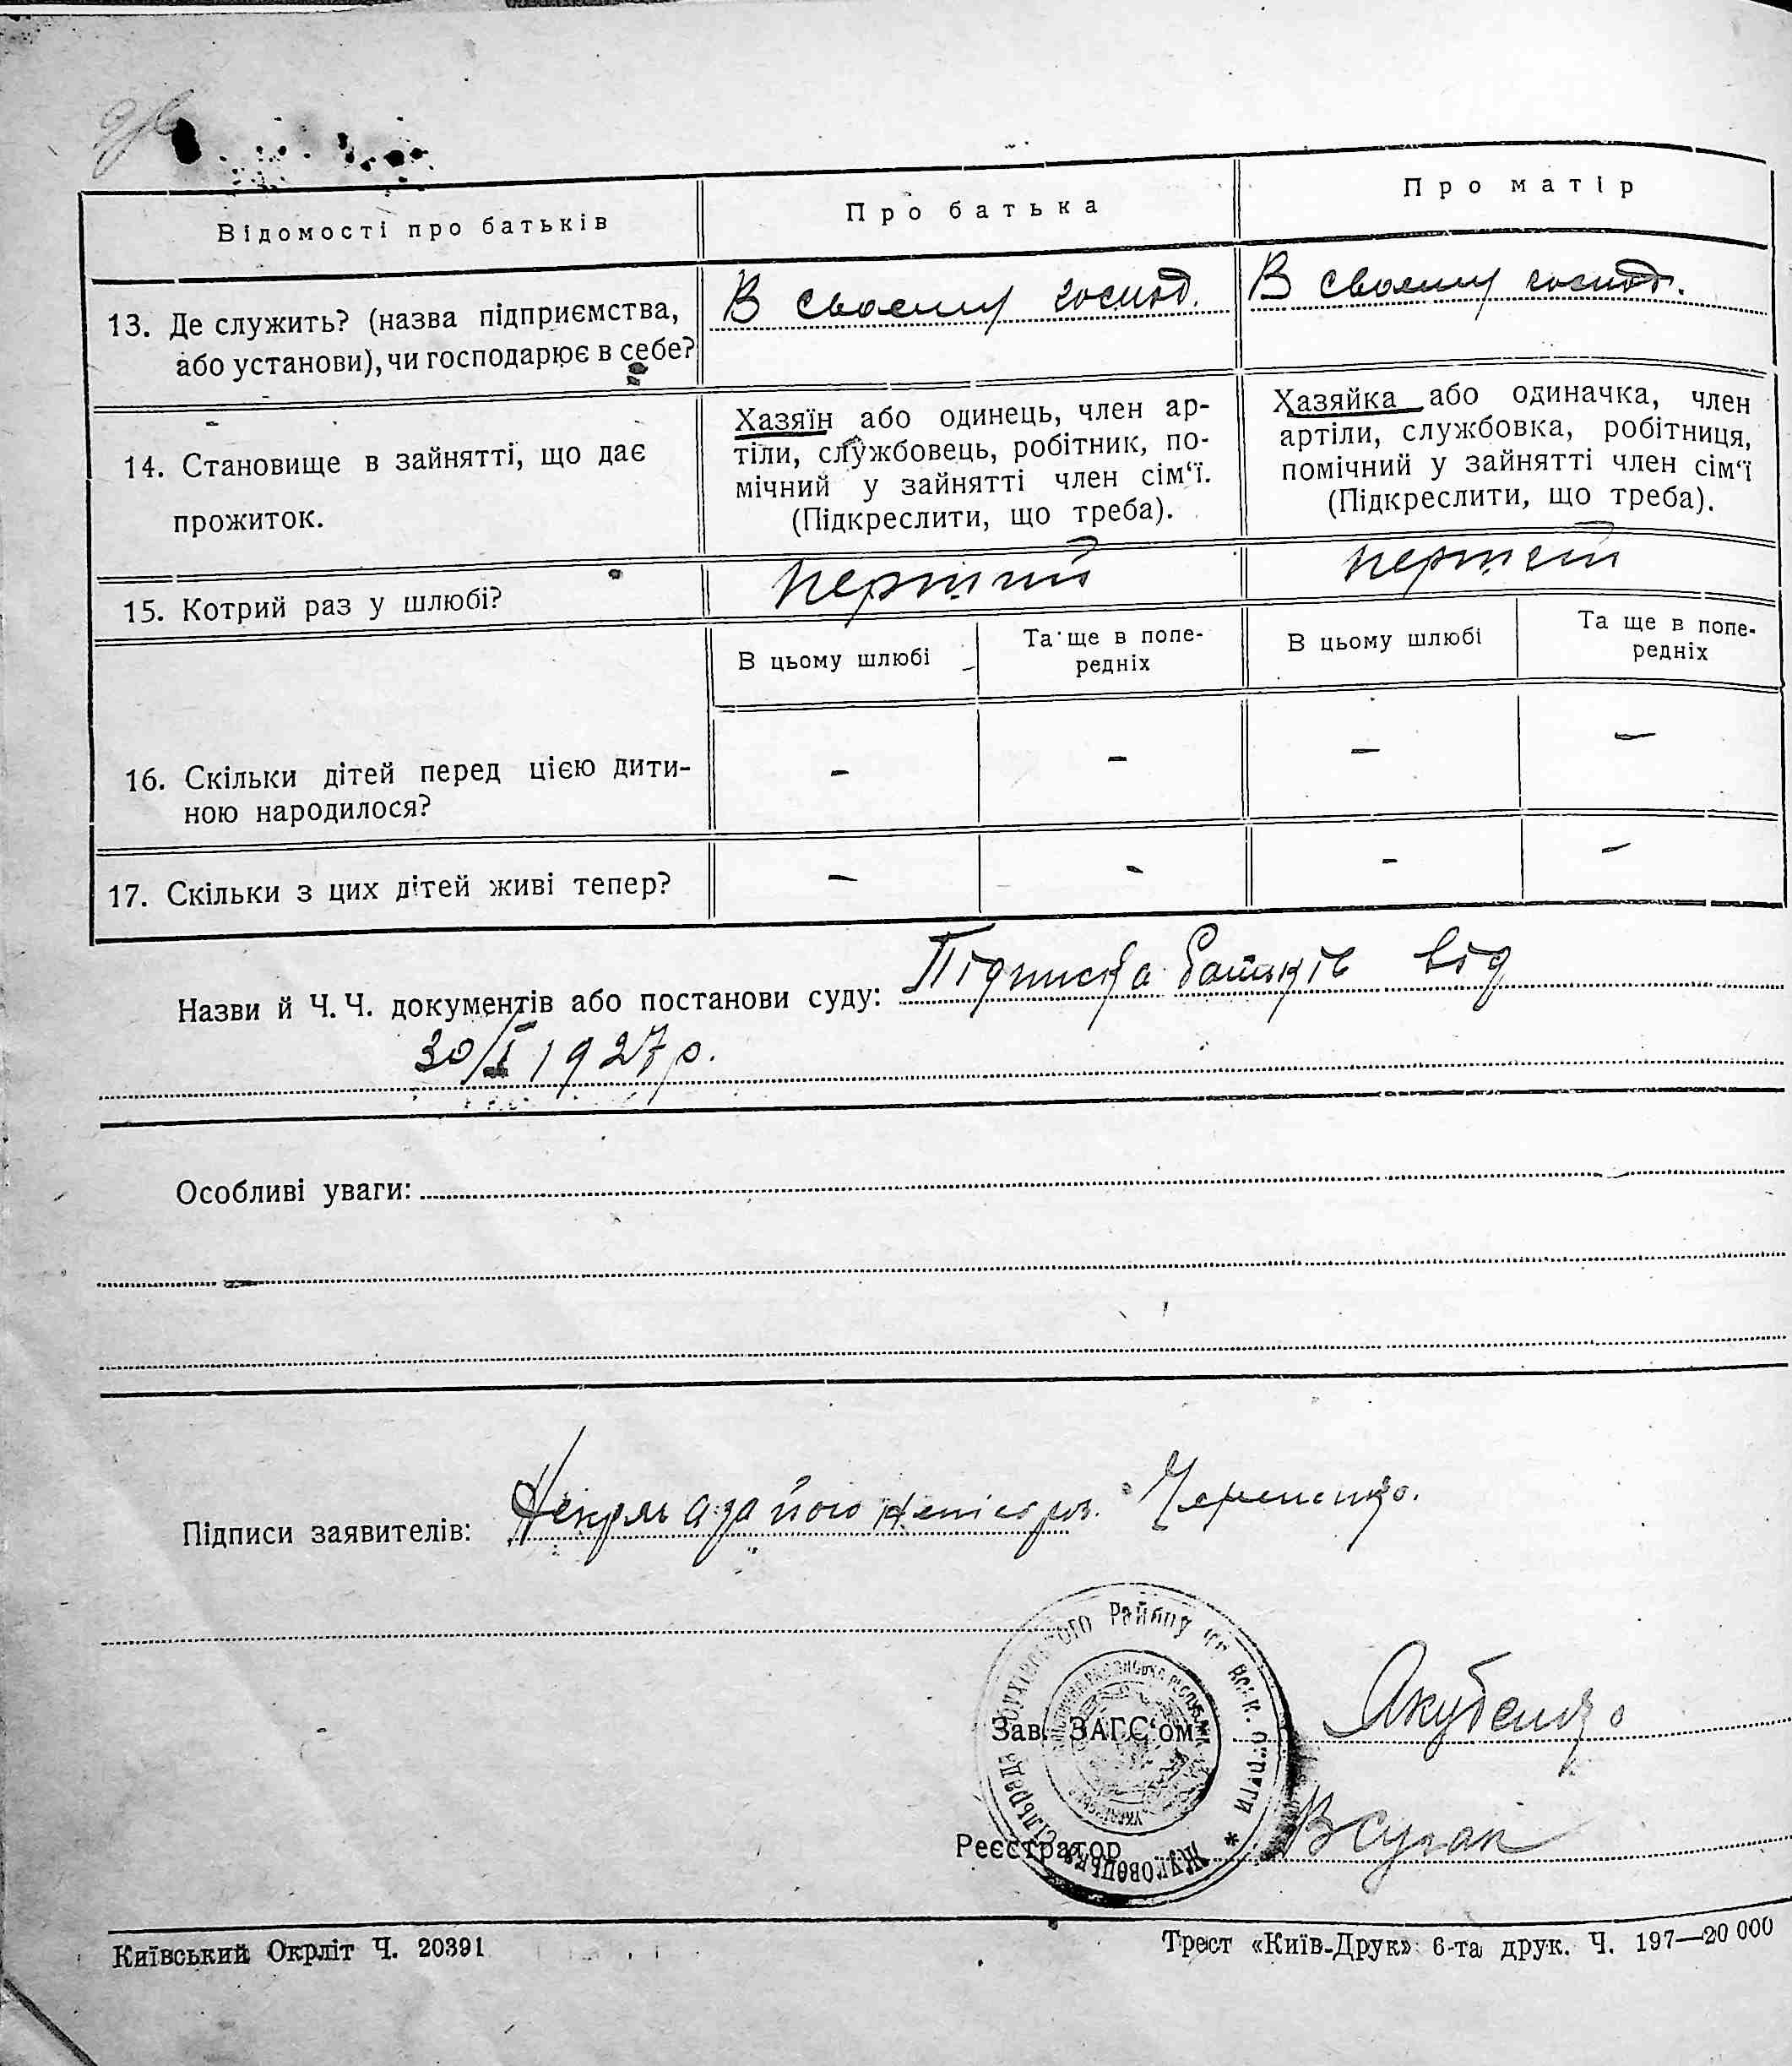 Відомості про батьків
Про батька
Про матір
13. Де служить? (назва підприємства,
або установи), чи господарює в себе?
В своєму господ.
В своєму господ.
14. Становище в зайнятті, що дає
прожиток.
Хазяїн або одинець, член ар-
тіли, службовець, робітник, по-
мічний у зайнятті член сім‘ї.
(Підкреслити, що треба).
Хазяйка або одиначка, член
артіли, службовка, робітниця,
помічний у зайнятті член сім‘ї
(Підкреслити, що треба).
15. Котрий раз у шлюбі?
перший
перший
В цьому шлюбі
Та ще в попе-
редніх
В цьому шлюбі
Та ще в попе-
редніх
16. Скільки дітей перед цією дити-
ною народилося?
– – – –
17. Скільки з цих дітей живі тепер?
– – – –
Назви й Ч. Ч. документів або постанови суду: Підписка батьків від
30/I 1927 р.
Особливі уваги:
Підписи заявителів: а за його непісьм.
Зав. ЗАГС‘ом Якубенко
Реєстратор
Київський Окрліт Ч. 20391
Трест «Київ-Друк» 6-та друк. Ч. 197—20 000